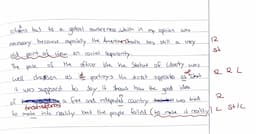 but to a global awareness which in my opinion was
necessary because especially the Americans still a very
old point of view on social superiority.
The pose of the officer like the Statue of Liberty was
well chosen as it portrays the direct opposite as what
it was supposed to say. It should show the good idea
of a free and independent country that was tried
to make into reality but the people failed (to make it reality)
R
St
R R L
R
L St/c